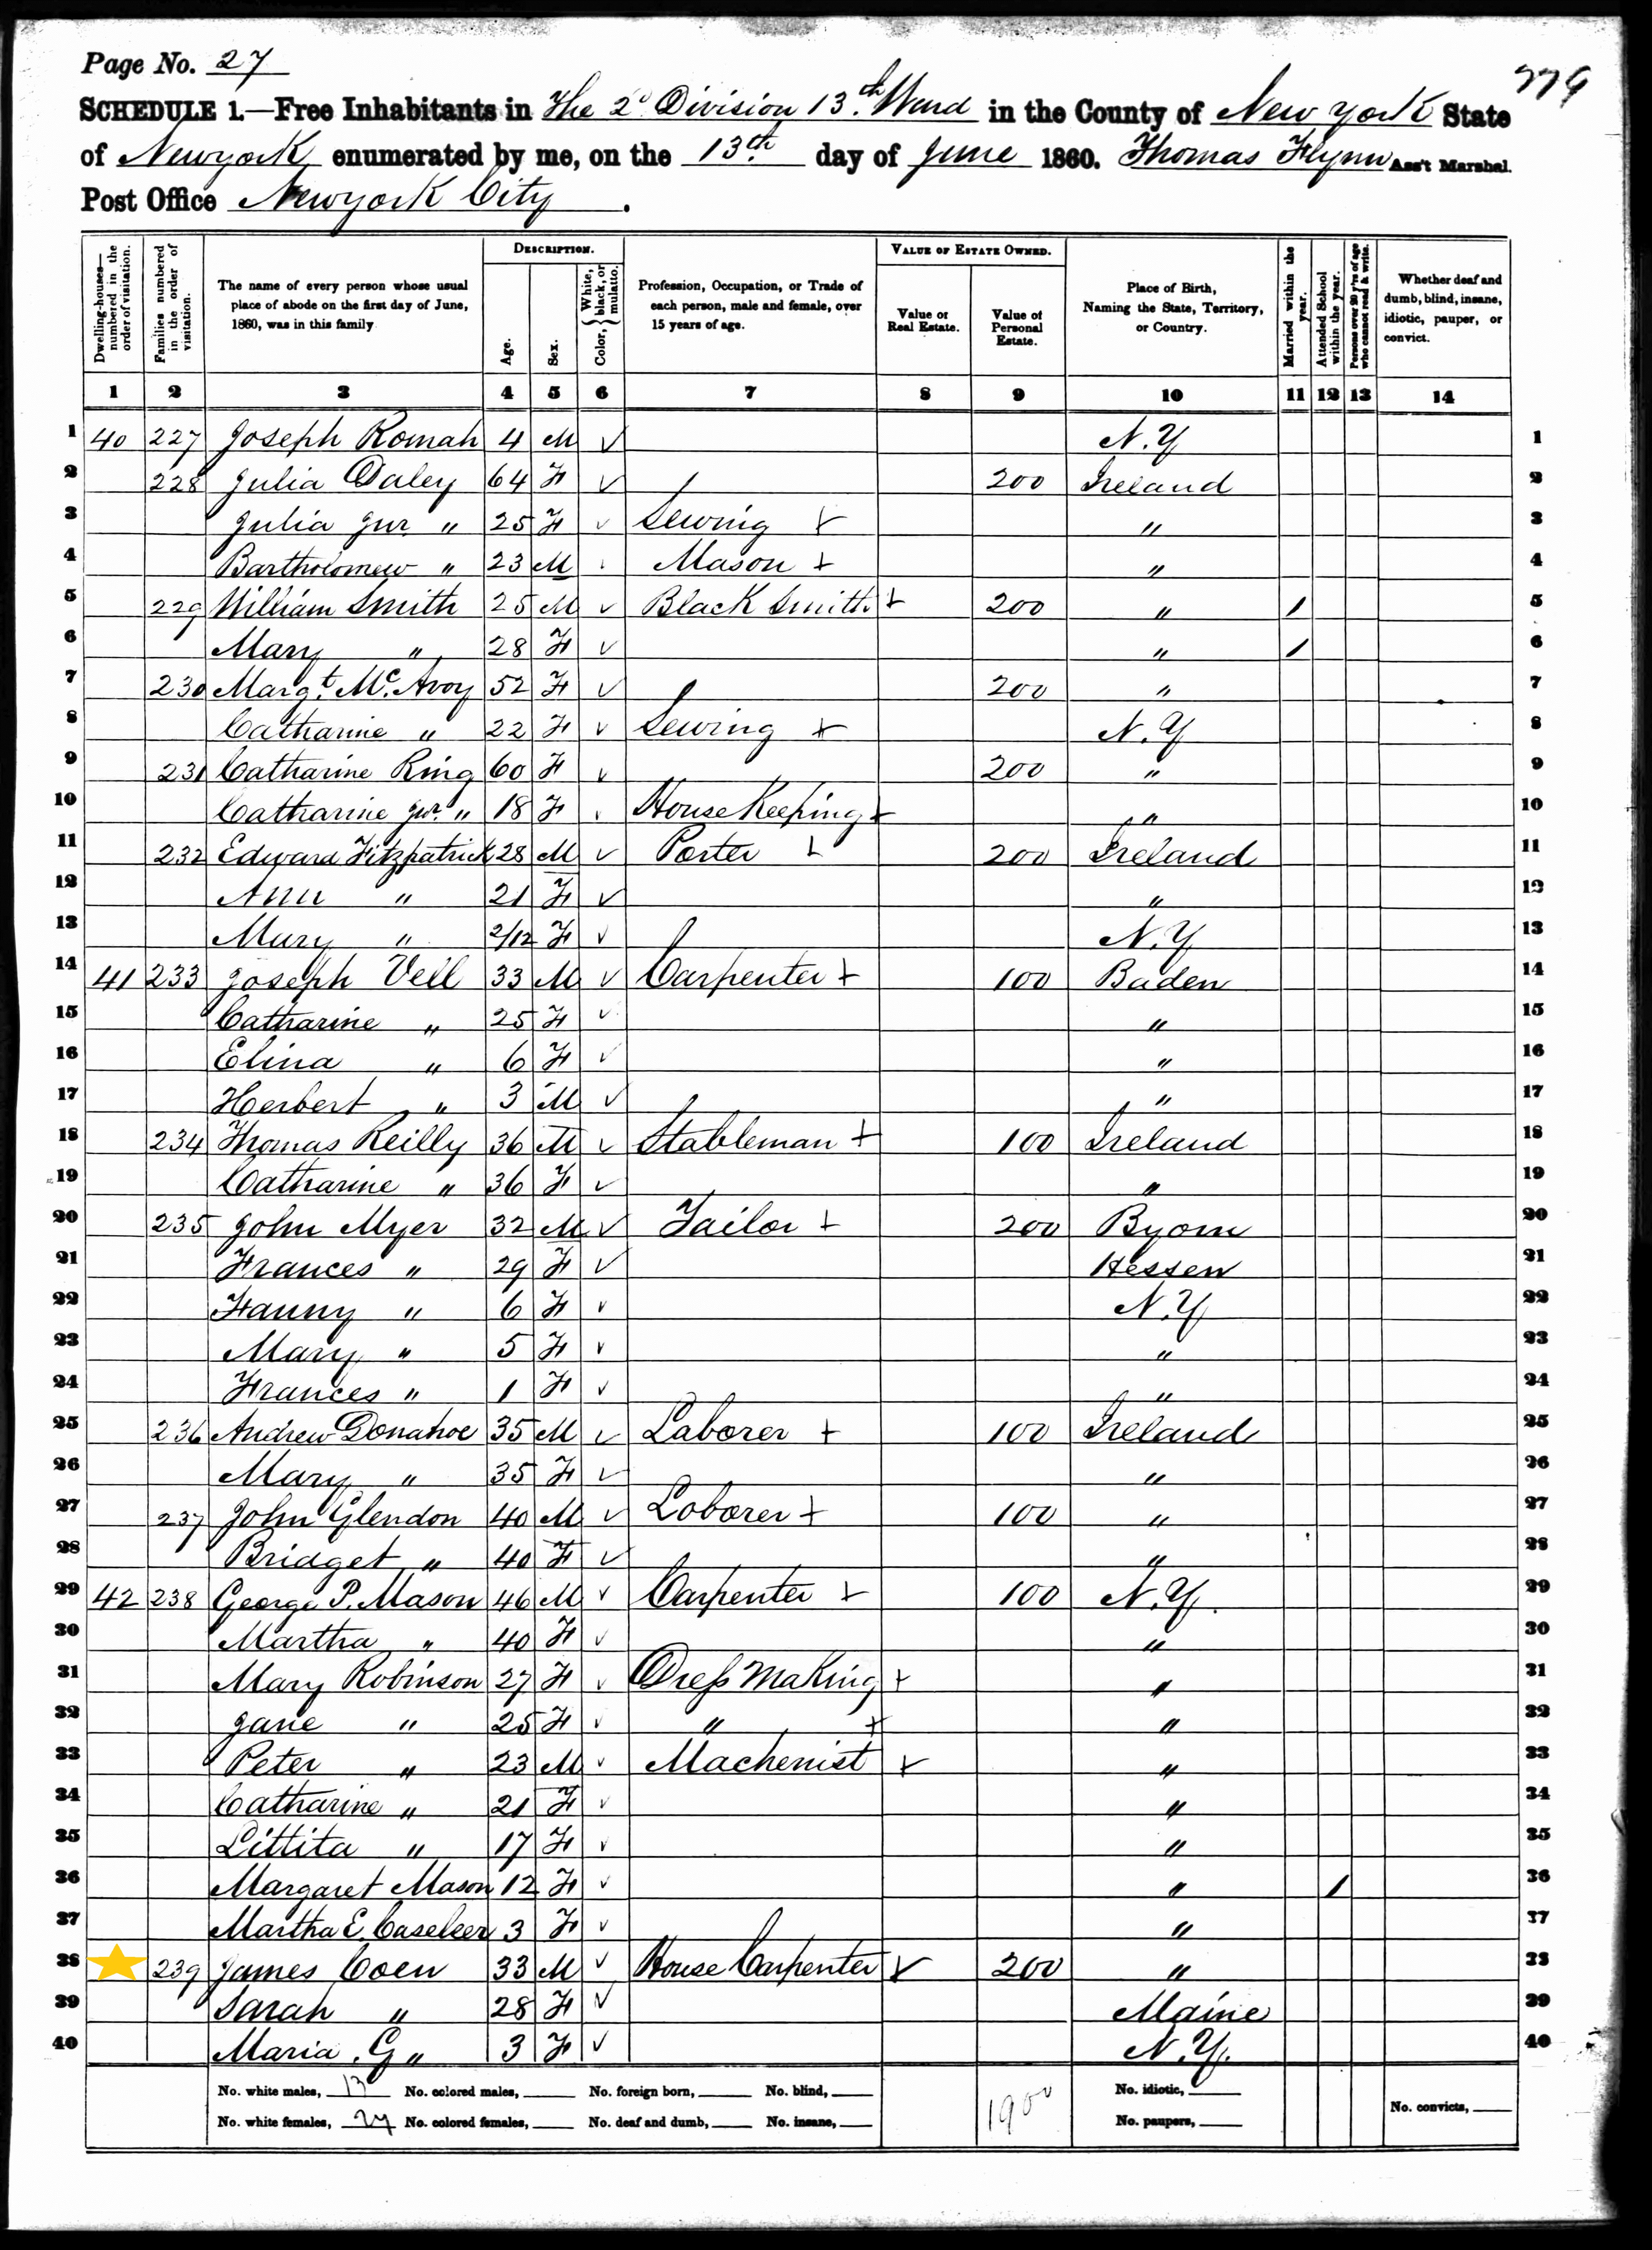 Page No. 27
779
SCHEDULE 1.—Free Inhabitants in The 2d Division 13th Ward in the County of New York State
of Newyork enumerated by me, on the 13th day of June 1860. Thomas Flynn Ass't Marshal.
Post Office Newyork City.
DESCRIPTION. VALUE OF ESTATE OWNED.
Dwelling-houses—numbered in the order of visitation. Families numbered in the order of visitation. The name of every person whose usual place of abode on the first day of June, 1860, was in this family Age. Sex. Color, {White, black, or mulatto. Profession, Occupation, or Trade of each person, male and female, over 15 years of age. Value of Real Estate. Value of Personal Estate. Place of Birth, Naming the State, Territory, or Country. Married within the year. Attended School within the year. Persons over 20 y'rs of age who cannot read & write. Whether deaf and dumb, blind, insane, idiotic, pauper, or convict.
1 2 3 4 5 6 7 8 9 10 11 12 13 14
1 40 227 Joseph Romah 4 M N.Y 1
2 228 Julia Daley 64 F 200 Ireland 2
3 Julia Jur. " 25 F Sewing " 3
4 Bartholomew " 23 M Mason " 4
5 229 William Smith 25 M Black Smith 200 " / 5
6 Mary " 28 F " / 6
7 230 Margt. Mc.Avoy 52 F 200 " 7
8 Catharine " 22 F Sewing N.Y 8
9 231 Catharine Ring 60 F 200 " 9
10 Catharine Jur. " 18 F House Keeping " 10
11 232 Edward Fitzpatrick 28 M Porter 200 Ireland 11
12 Ann " 21 F " 12
13 Mary " 2/12 F N.Y 13
14 41 233 Joseph Vell 33 M Carpenter 100 Baden 14
15 Catharine " 25 F " 15
16 Elina " 6 F " 16
17 Herbert " 3 M " 17
18 234 Thomas Reilly 36 M Stableman 100 Ireland 18
19 Catharine " 36 F " 19
20 235 John Myer 32 M Tailor 200 Byorn 20
21 Frances " 29 F Hessen 21
22 Fanny " 6 F N.Y 22
23 Mary " 5 F " 23
24 Frances " 1 F " 24
25 236 Andrew Donahoe 35 M Laborer 100 Ireland 25
26 Mary " 35 F " 26
27 237 John Glendon 40 M Loborer 100 " 27
28 Bridget " 40 F " 28
29 42 238 George P. Mason 46 M Carpenter 100 N.Y. 29
30 Martha " 40 F " 30
31 Mary Robinson 27 F Dress Making " 31
32 Jane " 25 F " " 32
33 Peter " 23 M Machenist " 33
34 Catharine " 21 F " 34
35 Littita " 17 F " 35
36 Margaret Mason 12 F " / 36
37 Martha E. 3 F " 37
38 239 James Coen 33 M House Carpenter 200 " 38
39 Sarah " 28 F Maine 39
40 Maria . G " 3 F N.Y. 40
No. white males, 13 No. colored males, No. foreign born, No. blind, 1900 No. idiotic,
No. white females, 27 No. colored females, No. deaf and dumb, No. insane, No. paupers, No. convicts,